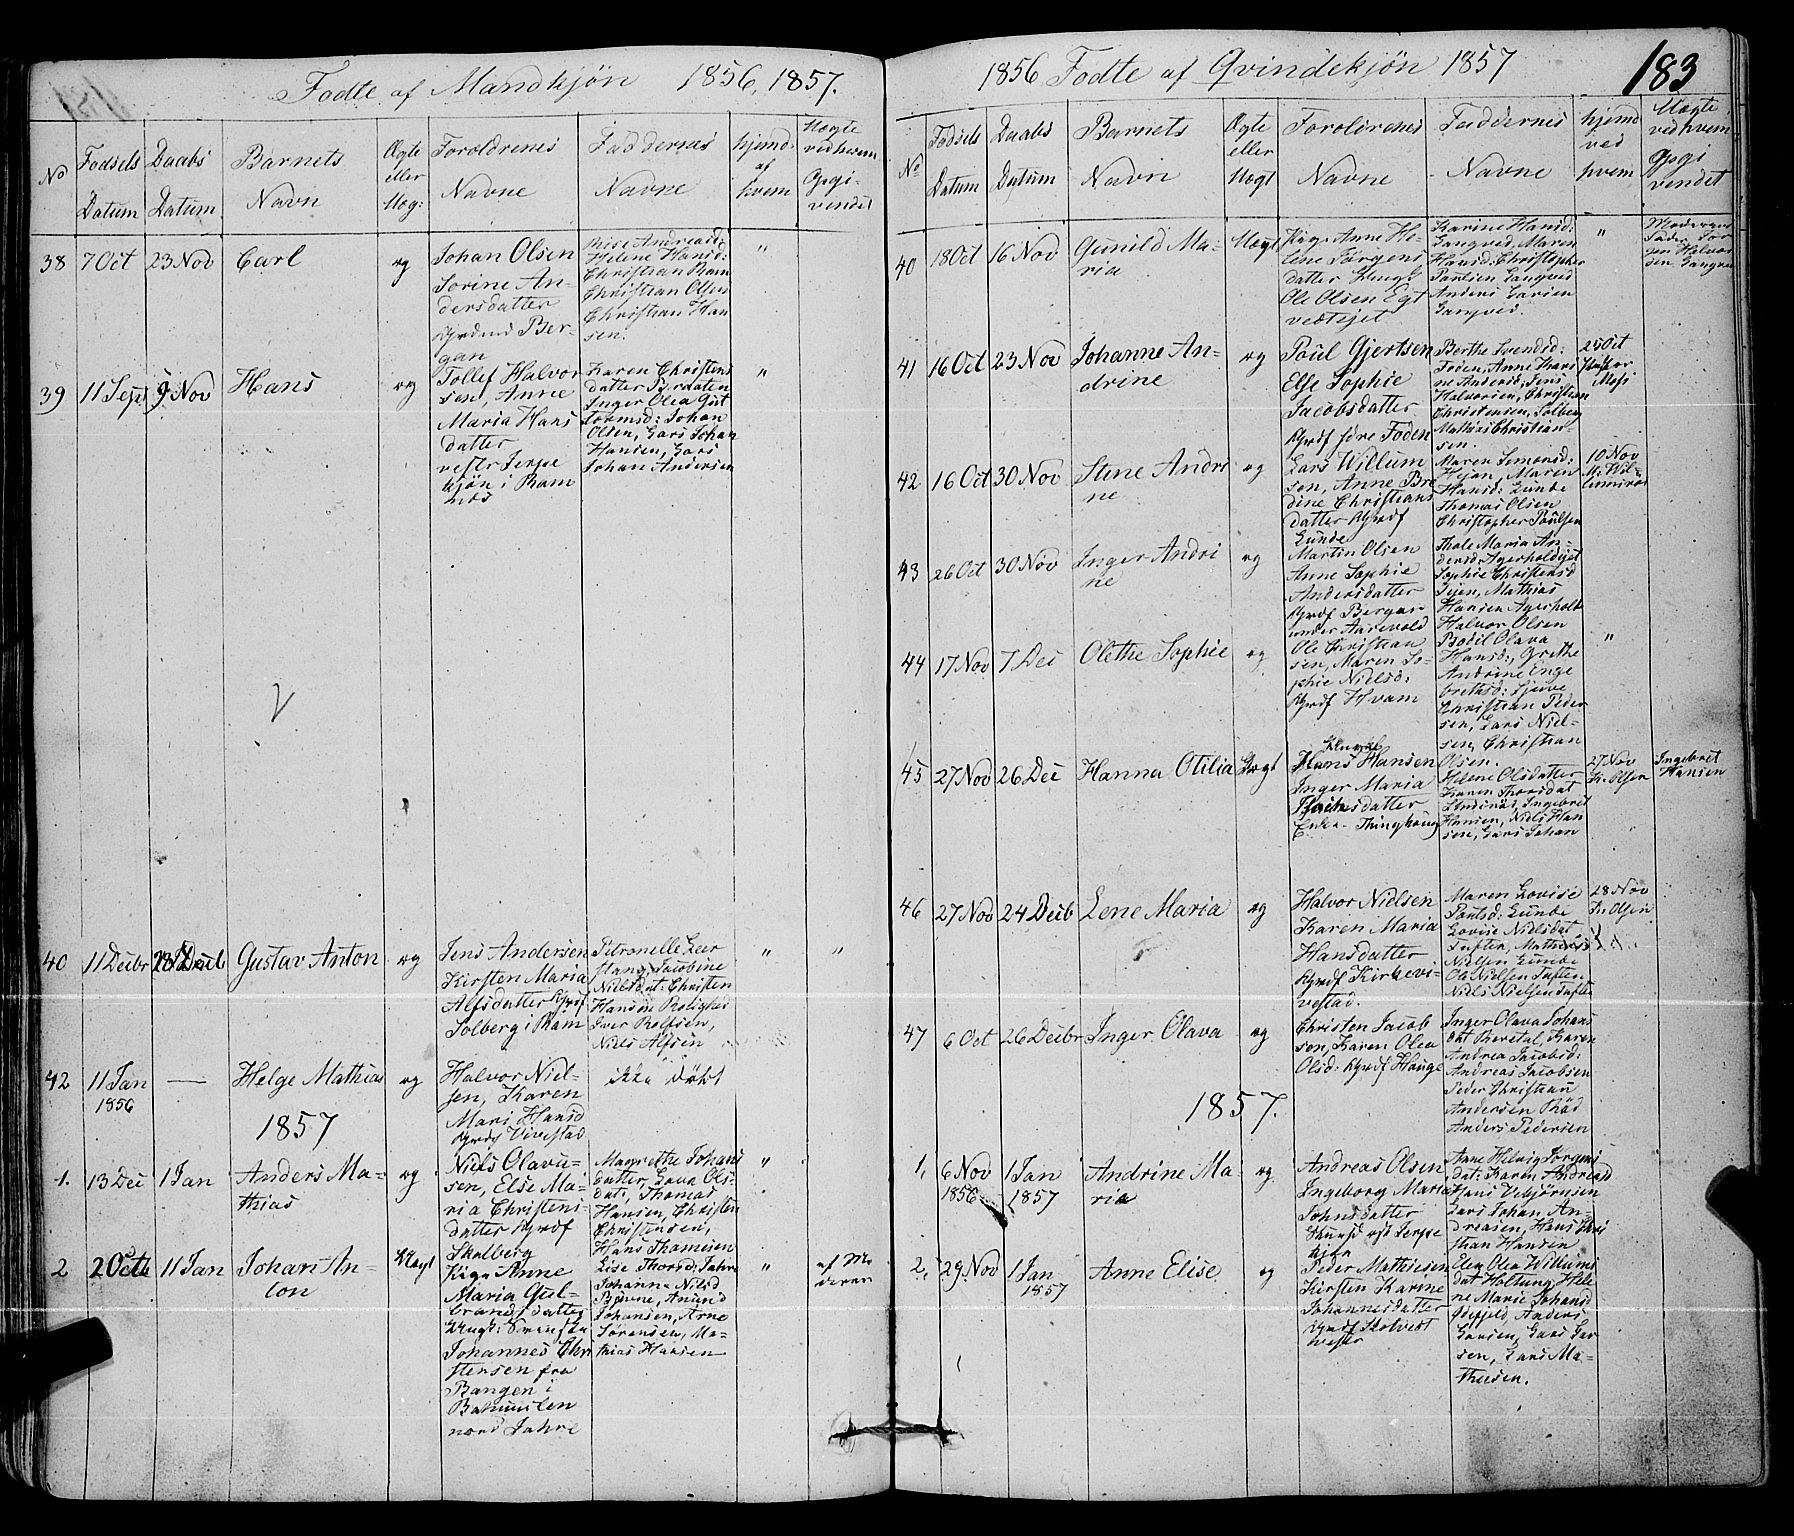 Fodte af Mandkjön 1856, 1857.
No
Fodsels Datum
Daabs Datum
Barnets Navn
Ægte eller Uæg:
Foroldrenes Navne
Faddernes Navne
hjemd. af hvem
Uægte ved hvem Opgi-
vendet
38 7 Oct 23 Nov Carl og
Johan Olsen
Sorine An-
dersdatter
Ber-
gan
Andreasd:
Helene Hansd:
Christian Ram
Christian Olsen
Christian Han
sen.
"
39 11 Sept 9 Nov Hans og
Tollef Halvor
sen, Anne
Maria Hans
datter
i Ram
næs
Karen Christens
datter
Inger Olea Gut
tormsd: Johan
Olsen, Lars Johan
Hansen, Lars
Johan Andersen
"
40 11 Decbr 28 Decb Gustav Anton og
Jens Andersen
Kirsten Maria
Alfsdatter
Solberg i Ram
Petronelle
Jacobine
Nielsdat: Christen
Hansen Rolighed
Iver Rolfsen,
Niels Alfsen
" "
42 11 Jan
1856
— Helge Mathias og
Halvor Niel-
sen, Karen
Mari Hansd
Vivestad
ikke døbt
1857
1. 13 Dec 1 Jan Anders Ma-
thias
og
Niels Olavu-
sen, Else Ma-
ria Christens-
datter Grdf
Skalberg
Magrethe Johans
datter, Lava Ols-
dat:, Thomas
Hansen, Christen
Christensen,
Hans Thomesen
"
2 2 Octb 11 Jan Johan An-
ton
Uægt
Pige Anne
Maria Gul-
brandsdatter
Johannes Chri
stensen fra
Bangen i
nord Jahre
Lise Thorsd: Jahre
Johanne Nilsd
Bjønne, Amund
Johansen, Arne
Sørensen, Ma-
thias Hansen
"
af Mo
deren
1856 Fodte af Qvindekjön 1857
183
No
Fodsels Datum
Daabs Datum
Barnets Navn
Ægte eller Uægt
Foroldrenes Navne
Faddernes Navne
hjemd ved hvem
Uægte ved hvem Opgi
vendet
40 18 Oct 16 Nov Gunild Ma-
ria
Uægt
Pige Anne He-
lene Jörgens
datter
Ole Olsen
Karine Hansd:
Gangved, Maren
Hansd: Christopher
Paulsen Gangved
Anders Larsen
Gangved.
"
Moderens
Fader Jör
gen Halvor
sen Gangved
41 16 Oct 23 Nov Johanne An-
drine
og
Poul Gjertsen
Else Sophie
Jacobsdatter
Grdf Foden
Berthe Svendsd:
Foden, Anne Kari
ne Andersd, Jens
Halvorsen, Christian
Christensen, Solberg
Mathias Christian-
sen.
25 Oct
42 16 Oct 30 Nov Stine Andri
ne
og
Lars Willum
sen, Anne Bre
dine Christians
datter Grdf
Lunde
Maren Simonsd:
Maren
Hansd: Lunde
Thomas Olsen
Christopher Paulsen
10 Nov
43 26 Oct 30 Nov Inger Andri
ne
og
Martin Olsen
Anne Sophie
Andersdatter
Grdf Bergan
under Aarevold
Thale Maria An-
dersd: Agerholdejet
Sophie Christensd
Mathias
Hansen Agerholt
Halvor Olsen
44 17 Nov 7 Dec Olethe Sophie og
Ole Christian
sen, Maren So-
phie Nielsd:
Grdf Hvam
Bodil Olava
Hansd:, Grethe
Andrine Enge
bretsd:
Christian Peder
sen, Lars Niel-
sen, Christian
Olsen.
"
45 27 Nov 26 Dec Hanna Otilia Uægt
Hans Hansen
Inger Maria
Enke. Thinghaug
Helene Olsdatter
Karen Thorsdat
Ingebret
Hansen, Niels Han
sen, Lars Johan
27 Nov
Kr. Olsen
Ingebret
Hansen
46 27 Nov 24 Decb Lene Maria og
Halvor Nielsen
Karen Maria
Hansdatter
Grdf Kirkevi-
vestad.
Maren Lovise
Paulsd: Lunde
Lovise Nielsdat
Tufte, Mathias
Nielsen Lunde
Ole Nielsen Tufte
Niels Nielsen Tufte
28 Nov
Kr. Olsen
47 6 Oct 26 Decbr Inger Olava og
Christen Jacob
sen, Karen Olea
Olsd: Grdf Hauge
Inger Olava Johans
dat Karen
Andrea Jacobsd:
Andreas Jacobsen
Peder Christian
Andersen Råd
Anders Pedersen
1857.
1, 6 Nov
1856
1 Jan
1857
Andrine Ma-
ria
og
Andreas Olsen
Ingeborg Maria
Johnsdatter
Anne Helvig Jörgens
dat: Karen Andreasd
Hans Vebjørnsen
Lars Johan An-
dreasen, Hans Chri
stian Hansen
2, 29 Nov 1 Jan
1857
Anne Elise og
Peder Mathiesen
Kirsten Karine
Johannesdatter
Grdf Skotvedt
Elen Olea Willums
dat Holtung, Hele
ne Marie Johansd
Anders
Larsen, Lars Lar
sen, Lars Ma-
thiesen.